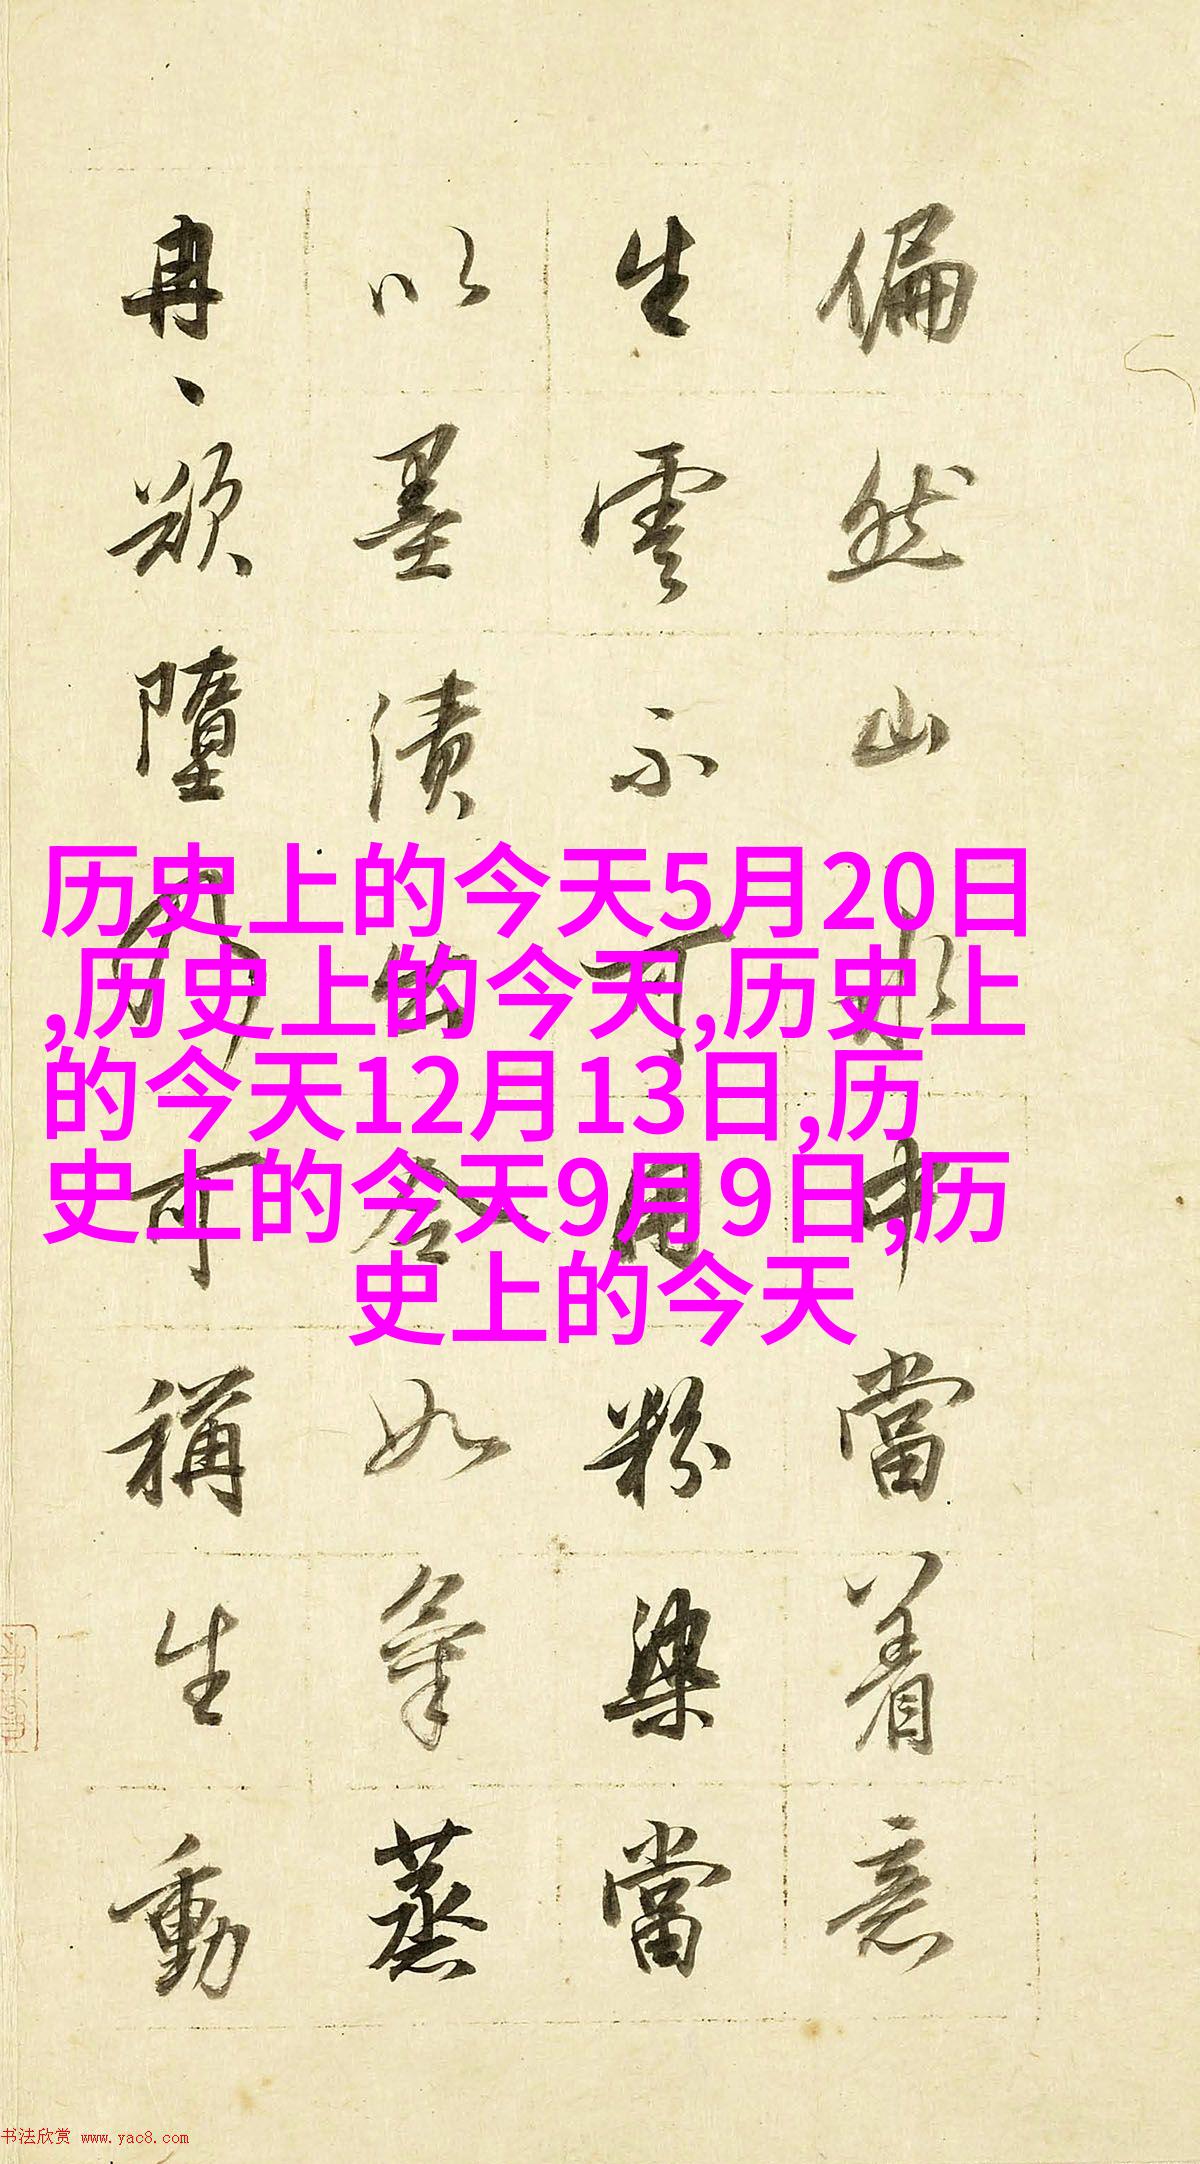 偏然山水中當着意
生雲不可用粉染當
以墨漬出令如氣蒸
冉、欲墮乃可稱生動
历史上的今天5月20日
,历史上的今天,历史上
的今天12月13日,历
史上的今天9月9日,历
史上的今天
书法欣赏 www.yac8.com